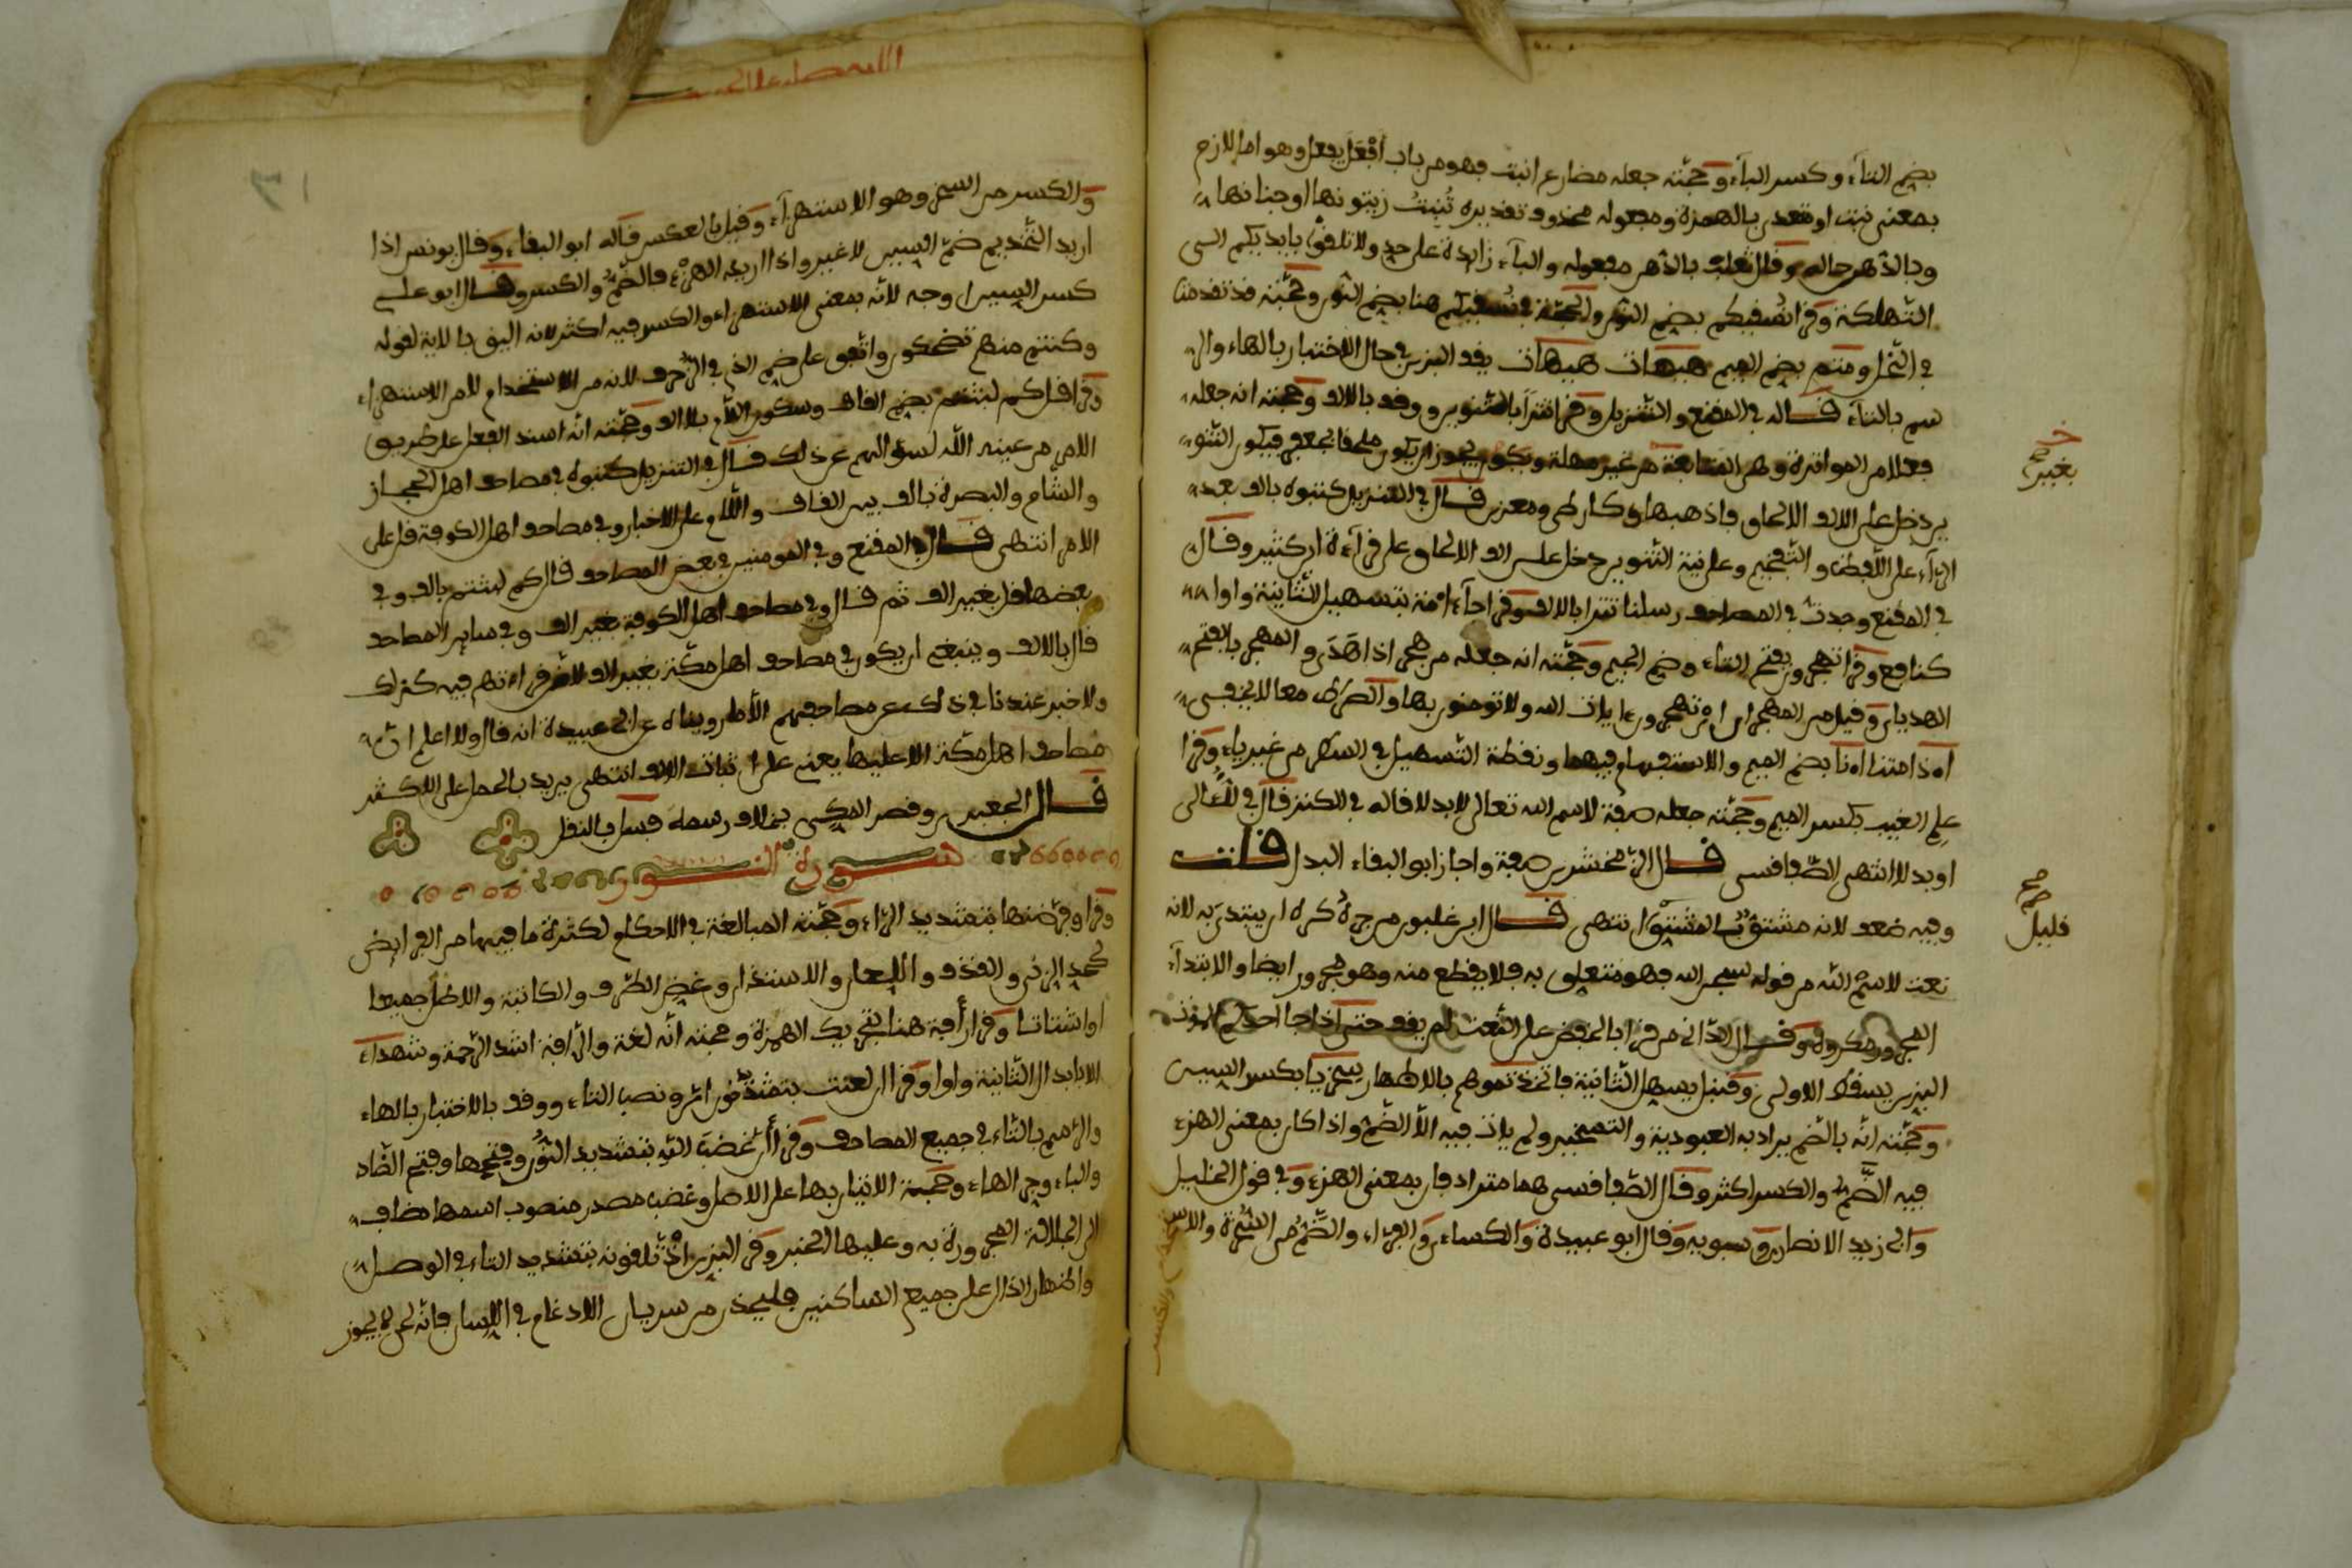 بضم التاء وكسر الباء وحجته جعله مضارع انبت فهو من باب أفعل يفعل وهو اما لازم
بمعنى نبت او متعدى بالهمزة ومفعوله محذوف تقديره تُنبِتُ زيتونها او جناتها
وبالدهن حال وقال ثعلب بالدهن مفعوله والباء زايدة على حد ولا تلقوا بايديكم الى
التهلكة وقرا نُسقيكم بضم النون والحجة في نسقيكم هنا بضم النون وحجته قد تقدمتا
في النحل ومتم بضم الميم هيهات هيهات يقف البزي في حال الاختبار بالهاء والر
سم بالتاء قاله في المقنع والتنزيل وقرا تترًا بالتنوين ووقف بالالف وحجته انه جعله
فعلا من المواترة وهى المتابعة من غير مهلة ويجوز ان يكون ملحقا بجعفر فيكون التنو
ين دخل على الف الالحاق فاذهبها كارطى ومعزى قال في التنزيل كتبوه بالف بعد
الراء على اللفظ والتفخيم وعلى نية التنوين دخل على الف الالحاق على قراءة ابن كثير وقال
في المقنع وجدت في المصاحف رسلنا تترا بالالف وقرا جاء امة بتسهيل الثانية واوا
كنافع وقرا تهجرون بفتح التاء وضم الجيم وحجته انه جعله من هجر اذا هَذَى والهجر بالفتح
الهذيان وقيل من الهجر اى تهجرون ايات الله ولا تومنون بها والصراط معا لا يخفى
اءذا متنا اءنا بضم الميم والاستفهام فيهما ونقطة التسهيل في السطر من غير ياء وقرا
علم الغيب بكسر الميم وحجته جعله صفة لاسم الله تعالى لا بدلا قاله في الكنز قال في اللئالى
او بدلا انتهى الصفاقسى قال الزمخشرى صفة واجاز ابو البقاء البدل قلت
وفيه ضعف لانه مشتق انتهى قال ابن غلبون من جره كره ان يبتدئ به لانه
نعت لاسم الله من قوله سبحن الله فهو متعلق به فلا يقطع منه وهو مجرور ايضا والابتداء
المجرور مكروه وقال الدانى من قرا بالخفض على النعت لم يقف حتى اذا جا احدكم الموت
البزى يسقط الاولى وقنبل يسهل الثانية فاتخذتموهم بالاظهار سِخريا بكسر السين
وحجته انه بالضم يراد به العبودية والتسخير ولم يات فيه الا الضم واذا كان بمعنى الهزء
فيه الضم والكسر اكثر وقال الصفاقسى هما مترادفان بمعنى الهزء وفي قول الخليل
وابى زيد الانصارى وسيبويه وقال ابو عبيدة والكساءى والفراء والضم من السُّخرة والاستخدام والكسر
بغير
صح
قليل
اللهم صل على
والكسر من السخر وهو الاستهزاء وقيل بالعكس قاله ابو البقاء وقال يونس اذا
اريد التخديم ضم السين لا غير واذا اريد الهزء فالضم والكسر وقال ابو على
كسر السين اوجه لانه بمعنى الاستهزاء والكسر فيه اكثر لانه اليق بالاية لقوله
وكنتم منهم تضحكون واتفق على ضم الذى في الزخرف لانه من الاستخدام لا من الاستهزاء
وقرا قل كم لبثتم بضم القاف وسكون اللام بلا الف وحجته انه اسند الفعل على طريق
الامر من عينه الله لسؤالهم عن ذلك قال في التنزيل كتبوه في مصاحف اهل الحجاز
والشام والبصرة بالف بين القاف واللام على الاخبار وفي مصاحف اهل الكوفة قل على
الامر انتهى قال في المقنع وفي المومنين في بعض المصاحف قال كم لبثتم بالف وفي
بعضها قل بغير الف ثم قال وفي مصاحف اهل الكوفة بغير الف وفي ساير المصاحف
قال بالالف وينبغى ان يكون في مصاحف اهل مكة بغير الف لان قراءتهم فيه كذلك
ولا خبر عندنا في ذلك عن مصاحفهم الا ما رويناه عن ابى عبيدة انه قال ولا اعلم ان
مصاحف اهل مكة الا عليها يعنى على اثبات الالف انتهى يريد بالحمل على الاكثر
قال الجعبرى وقصر المكى بخلاف رسمه قياسا بالنقل
سورة النور
وقرا وفرّضنها بتشديد الراء وحجته المبالغة في الاحكام لكثرة ما فيها من الفرايض
كحد الزنى والقذف واللعان والاستئذان وغض الطرف والكاتبة والاطر جميعا
او اشتاتا وقرا رأفة هنا بتحريك الهمزة وحجته انه لغة والرافة اشد الرحمة وشهداء
الا بابدال الثانية واوا وقرا ان لعنت بتشديد نون ان ونصب التاء ووقف بالاختبار بالهاء
والرسم بالتاء في جميع المصاحف وقرا أنّ غضبَ الله بتشديد النون وفتحها وفتح الضاد
والباء وجر الهاء وحجته الاتيان بها على الاصل وغضب مصدر منصوب اسمها مضاف
الى الجلالة المجرورة به وعليها الخبر وقرا البزى اذ تّلقونه بتشديد التاء في الوصل
واظهار الذال على جميع الساكنين فليحذر من سريان الادغام في اللسان فانه لحن لا يجوز